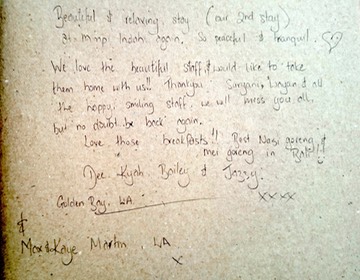 Beautiful & relaxing stay (our 2nd stay)
at Mimpi Indah again. So peaceful & tranquil.
We love the beautiful staff & would like to take
them home with us!! Thankyou Suryani, Wayan & all
the happy smiling staff, we will miss you all,
but no doubt be back again.
Love those breakfasts!! Best Nasi goreng &
mei goreng in Bali!!
Dee, Kyah Bailey & Jazzy.
Golden Bay, WA. xxxx
&
Max & Kaye Martin, WA
x